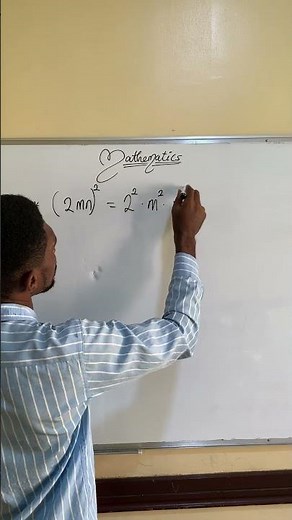 Mathematics
(2mn)² = 2² · m² ·